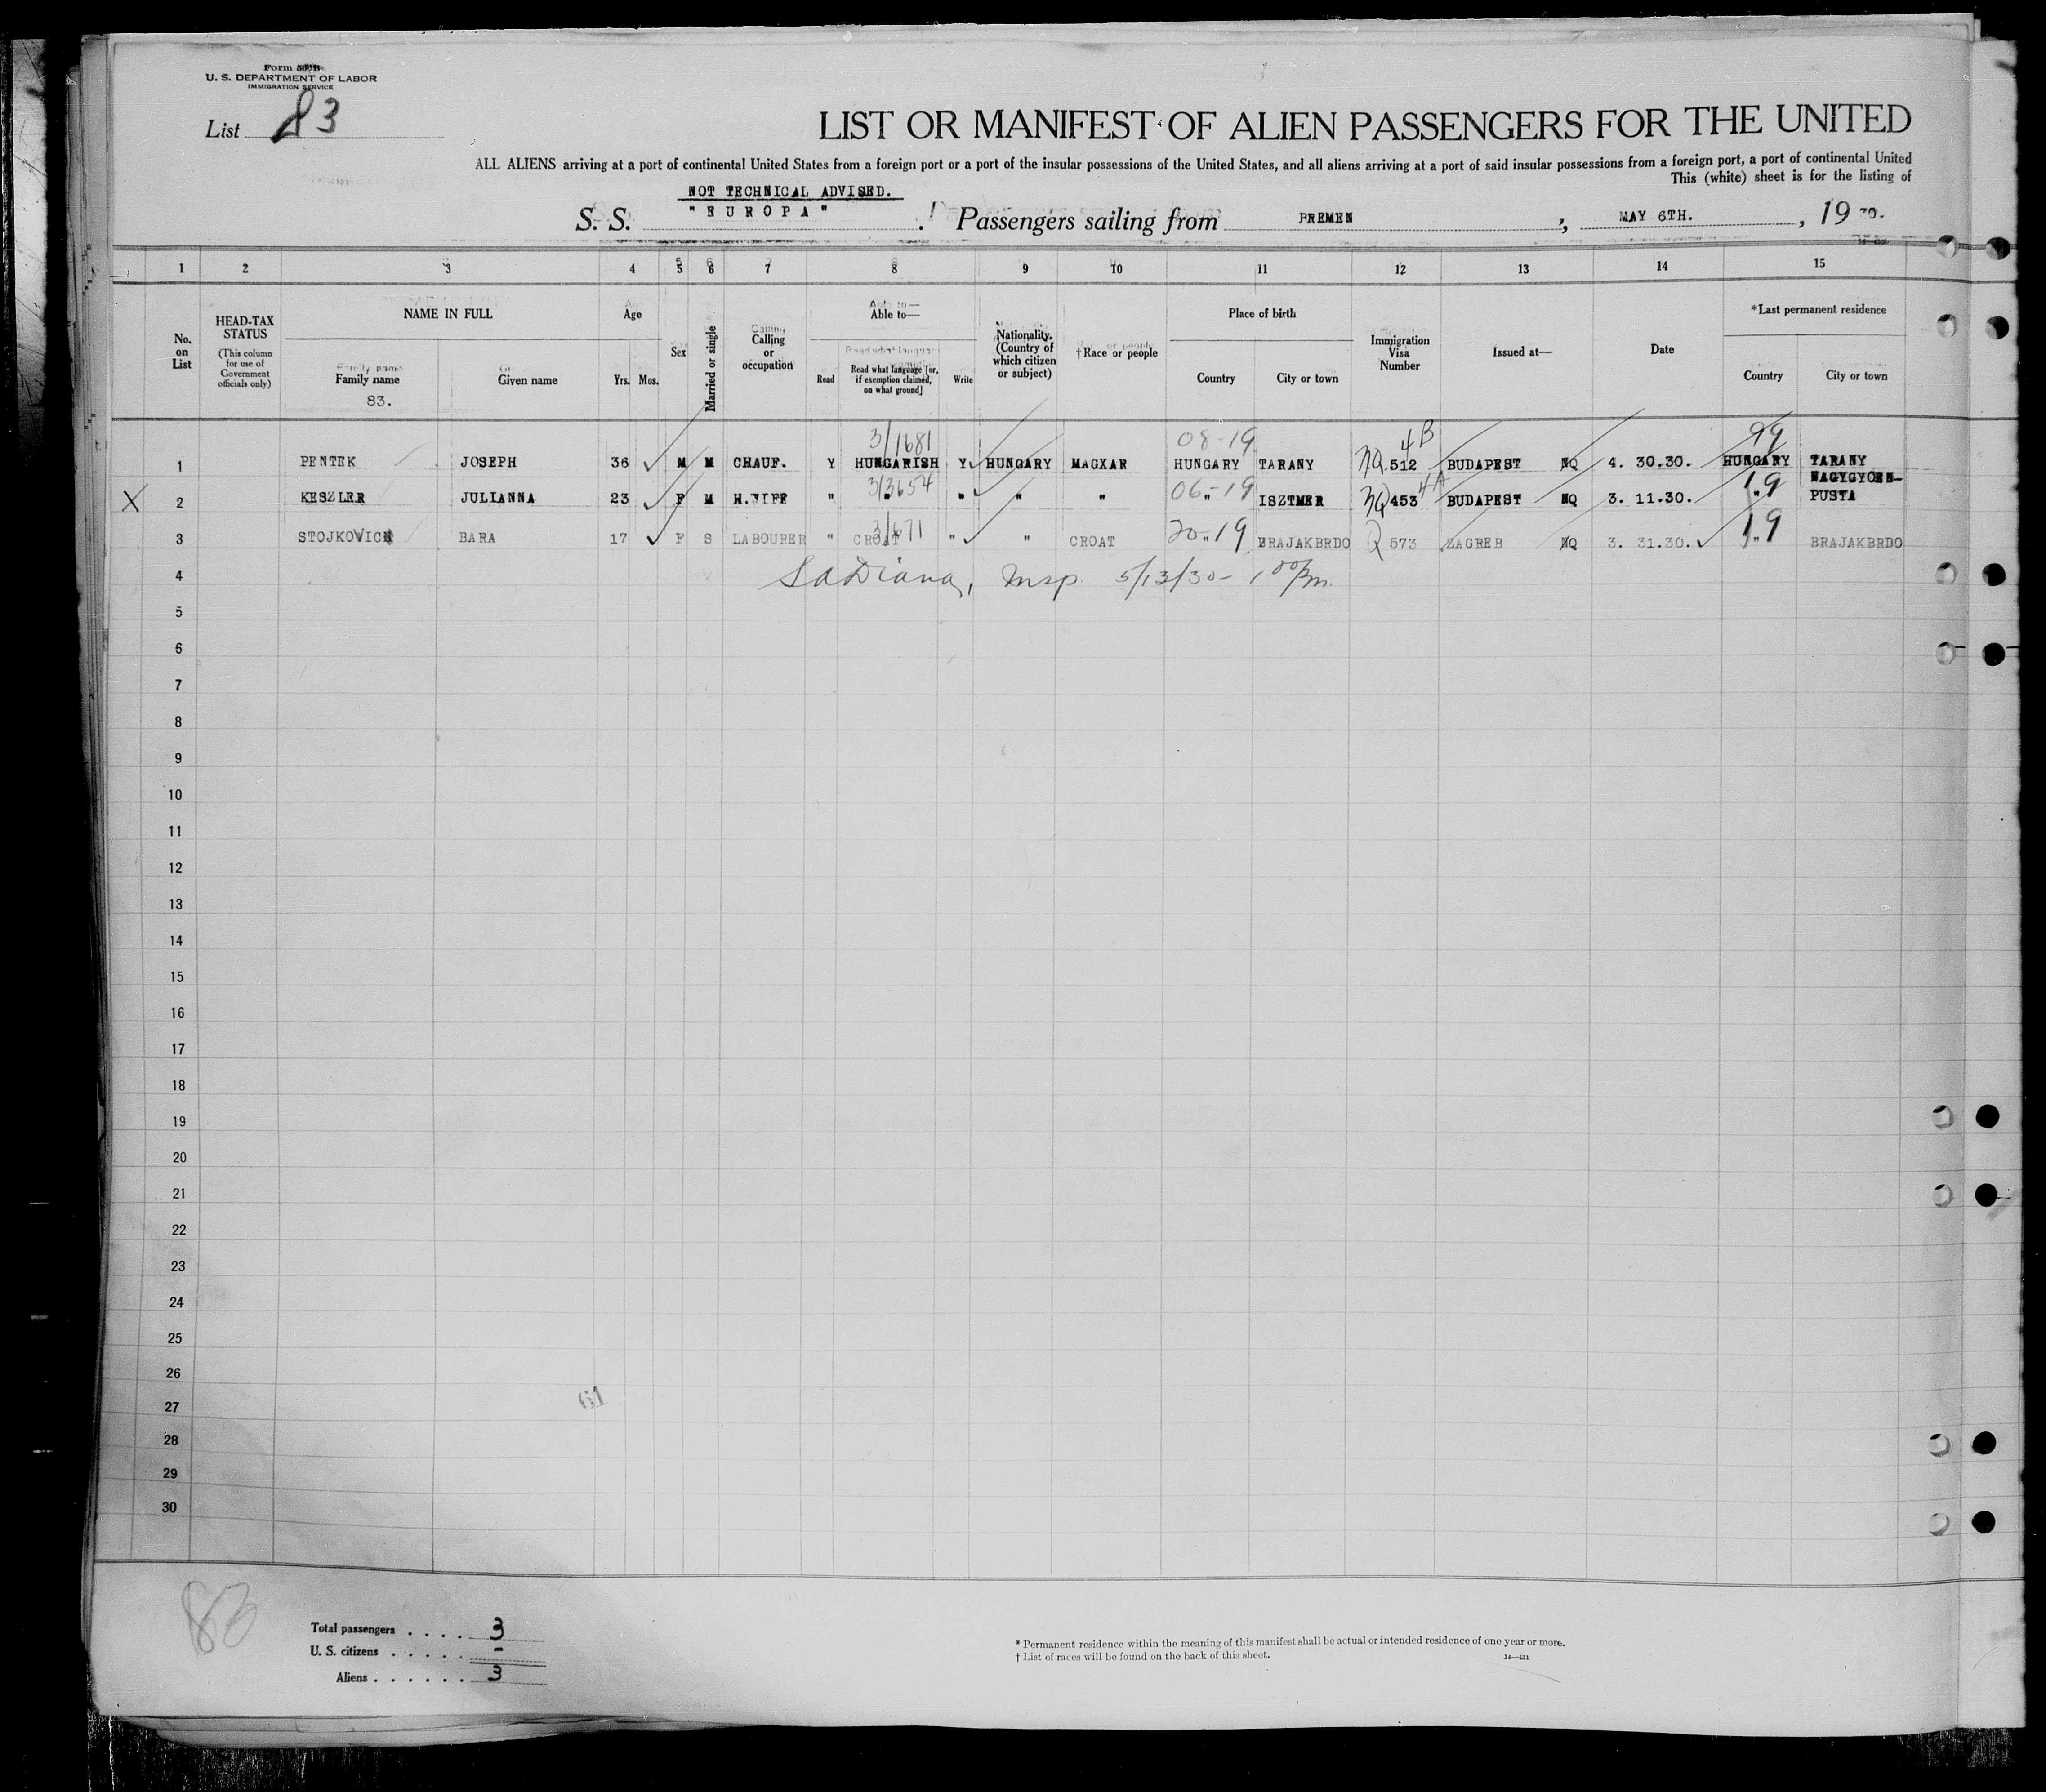 U. S. DEPARTMENT OF LABOR
IMMIGRATION SERVICE
List 83
LIST OR MANIFEST OF ALIEN PASSENGERS FOR THE UNITED
ALL ALIENS arriving at a port of continental United States from a foreign port or a port of the insular possessions of the United States, and all aliens arriving at a port of said insular possessions from a foreign port, a port of continental United
This (white) sheet is for the listing of
NOT TECHNICAL ADVISED.
S. S. "EUROPA". Passengers sailing from BREMEN, MAY 6TH., 19 30.
1 2 3 4 5 6 7 8 9 10 11 12 13 14 15
No. on List
HEAD-TAX STATUS
(This column for use of Government officials only)
NAME IN FULL
Family name
Given name
83.
Age
Yrs. Mos.
Sex
Married or single
Calling or occupation
Able to—
Read
Read what language [or, if exemption claimed, on what ground]
Write
Nationality. (Country of which citizen or subject)
†Race or people
Place of birth
Country
City or town
Immigration Visa Number
Issued at—
Date
*Last permanent residence
Country
City or town
3/1681 08-19 4B 99
1 PENTEK JOSEPH 36 M M CHAUF. Y HUNGARISH Y HUNGARY MAGXAR HUNGARY TARANY NQ 512 BUDAPEST NQ 4. 30.30. HUNGARY TARANY
3/3654 06-19 4A 19 NAGYGYOEN-
X 2 KESZLER JULIANNA 23 F M H.WIFE " " " " " " ISZTMER NQ 453 BUDAPEST NQ 3. 11.30. " PUSTA
3/671 20-19 19
3 STOJKOVICH BARA 17 F S LABOURER " CROAT " " CROAT " BRAJAKBRDO Q 573 ZAGREB NQ 3. 31.30. " BRAJAKBRDO
4 5/13/30 - 1 00 pm
5
6
7
8
9
10
11
12
13
14
15
16
17
18
19
20
21
22
23
24
25
26
61
27
28
29
30
83
Total passengers . . . . 3
U. S. citizens . . . . . –
Aliens . . . . . . 3
* Permanent residence within the meaning of this manifest shall be actual or intended residence of one year or more.
† List of races will be found on the back of this sheet.